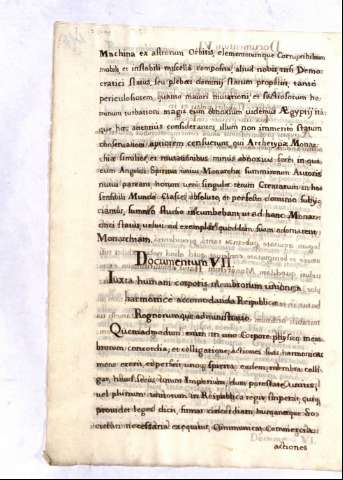 Machina ex astrorum Orbitis, elementorumque Corruptibilium
mobili, et instabili miscella composita, aliud nobis, nisi Demo-
cratici status, seu plebei dominij statum
periculosiorem, quanto maiori mutationi, et factiosorum ho-
minum turbationi magis eum obnoxium videmus. Ægyptij ita-
que hæc attentius considerantes, illum non immerito statum
conservationi aptiorem censuerunt, qui Archetypæ Monar-
chiæ similior, et mutationibus minus obnoxius foret in qua
cum Angelici Spiritus unius Monarchæ summorum Autoris
nutui pareant, horum verò singuli rerum Creatarum in hoc
sensibili Mundo Classes absoluto, et perfecto dominio subij-
ciantur, summo studio incumbebant, ut ad hanc Monar-
chici status, veluti ad exemplar quoddam suam adornarent
Monarchiam.
Documentum VII
Iuxta humani corporis membrorum unionem
harmonice accommodanda Reipublicæ
Regnorumque administratio.
Quemadmodum enim in uno Corpore physico mem-
brorum concordia, et colligatione, actiones suas harmonicas
mens exerit, et perficit, unoque spiritu, eadem membra colli-
gat,
vel plurium unitorum in Respublica regitur,
providet, leges dicit, firmat concordiam, humanæque So-
cietati necessaria exequitur, Communium
actiones